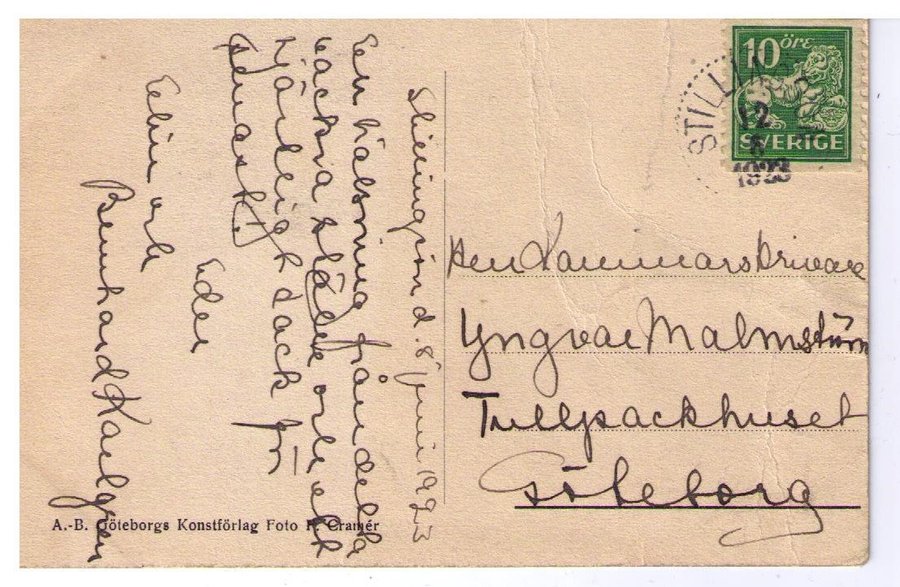 10 öre
SVERIGE
STILLIN
12
6
1923
Stillingsön d. 8 juni 1923
En hälsning från detta
vackra ställe och ett
hjärtligt tack för
senast!
Eder
Elin och
Bernhard Karlgren
Herr Kammarskrivare
Yngvar Malmström
Tullpackhuset
Göteborg
A.-B. Göteborgs Konstförlag Foto F. Cramér